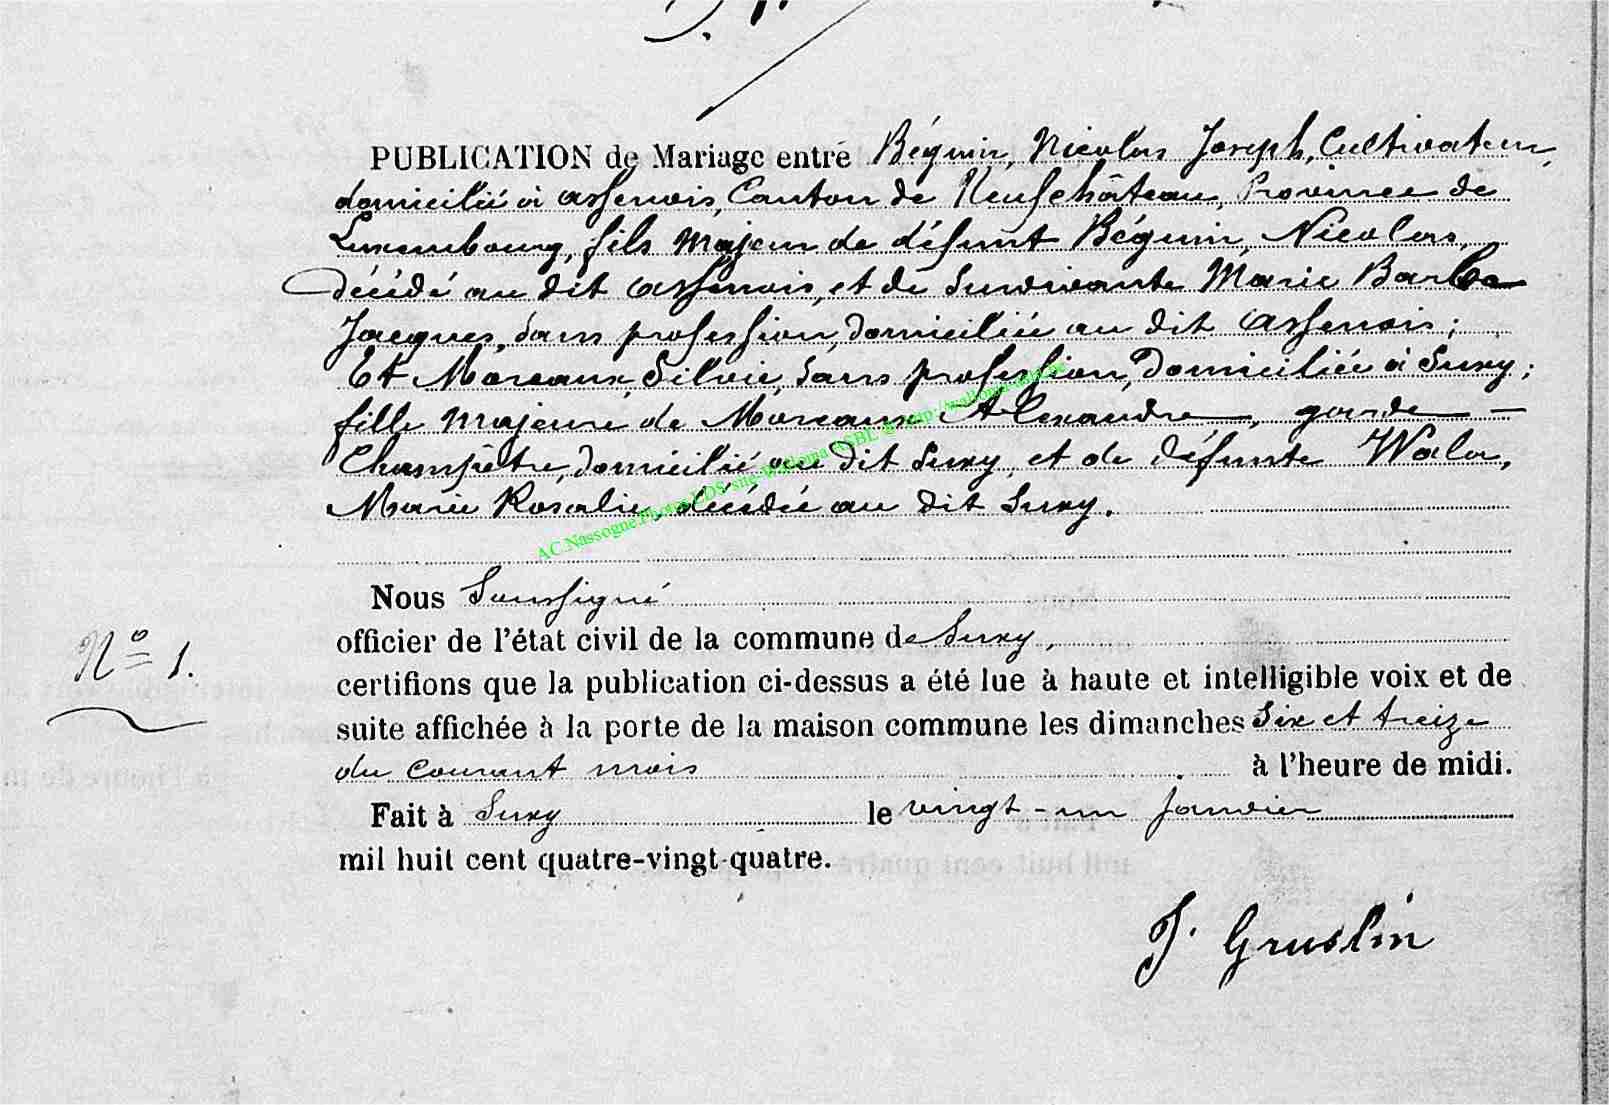 PUBLICATION de Mariage entre Béguin, Nicolas Joseph, Cultivateur,
domicilié à assenois, Canton de Neufchâteau, Province de
Luxembourg, fils majeur de défunt Béguin, Nicolas,
décédé au dit assenois, et de survivante Marie Barbe
Jacques, sans profession, domiciliée au dit assenois ;
Et Moreaux Silvie, sans profession, Domiciliée à Suxy ;
fille majeure de Moreaux Alexandre, garde -
Champêtre, domicilié au dit Suxy, et de défunte
Marie Rosalie, décédée au dit Suxy.
AC.Nassogne.Photos.LDS site Wallonia ASBL
Nous Soussigné
Nº 1.
officier de l'état civil de la commune de Suxy,
certifions que la publication ci-dessus a été lue à haute et intelligible voix et de
suite affichée à la porte de la maison commune les dimanches Six et treize
du courant mois à l'heure de midi.
Fait à Suxy le vingt-un janvier
mil huit cent quatre-vingt-quatre.
J. Gruslin